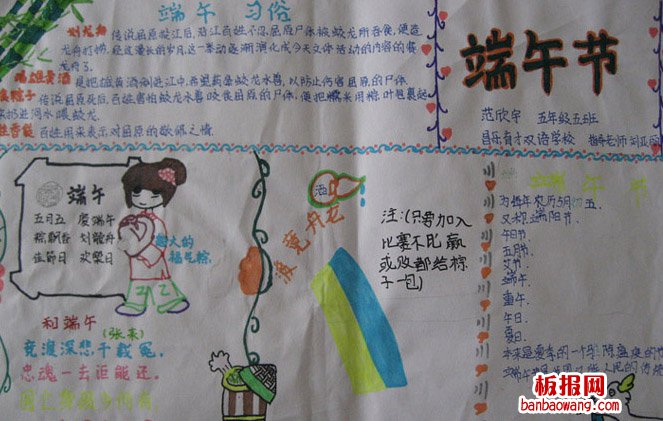 端午 习俗
划龙舟 传说屈原投江后,沿江百姓不忍屈原尸体被蛟龙所吞食,便造
龙舟打捞,经过漫长的岁月,这一举动逐渐演化成今天文体活动的内容的赛
龙舟了.
喝雄黄酒 是把雄黄酒倒进江中,希望药晕蛟龙水兽,以防止伤害屈原的尸体.
传说屈原死后,百姓害怕蛟龙水兽咬食屈原的尸体,便把糯米用粽叶包裹起
扔进河水喂蛟龙.
百姓用来表示对屈原的敬佩之情.
端午节
范欣宇 五年级五班
昌乐育才双语学校 指导老师 刘
端午
五月五 庆端午
粽飘香 划龙舟
佳节日 欢聚日
最大的
福气粽.
和端午
(张耒)
竞渡深悲千载冤,
忠魂一去讵能还.
国亡身殒今何有
注:(只要加入
比赛不比赢
或败都给粽
子一包)
端午节
为每年农历5月初五,
又称端阳节.
午日节
五月节
艾节
端午
重午,
午日.
夏日.
板报网
banbaowang.com